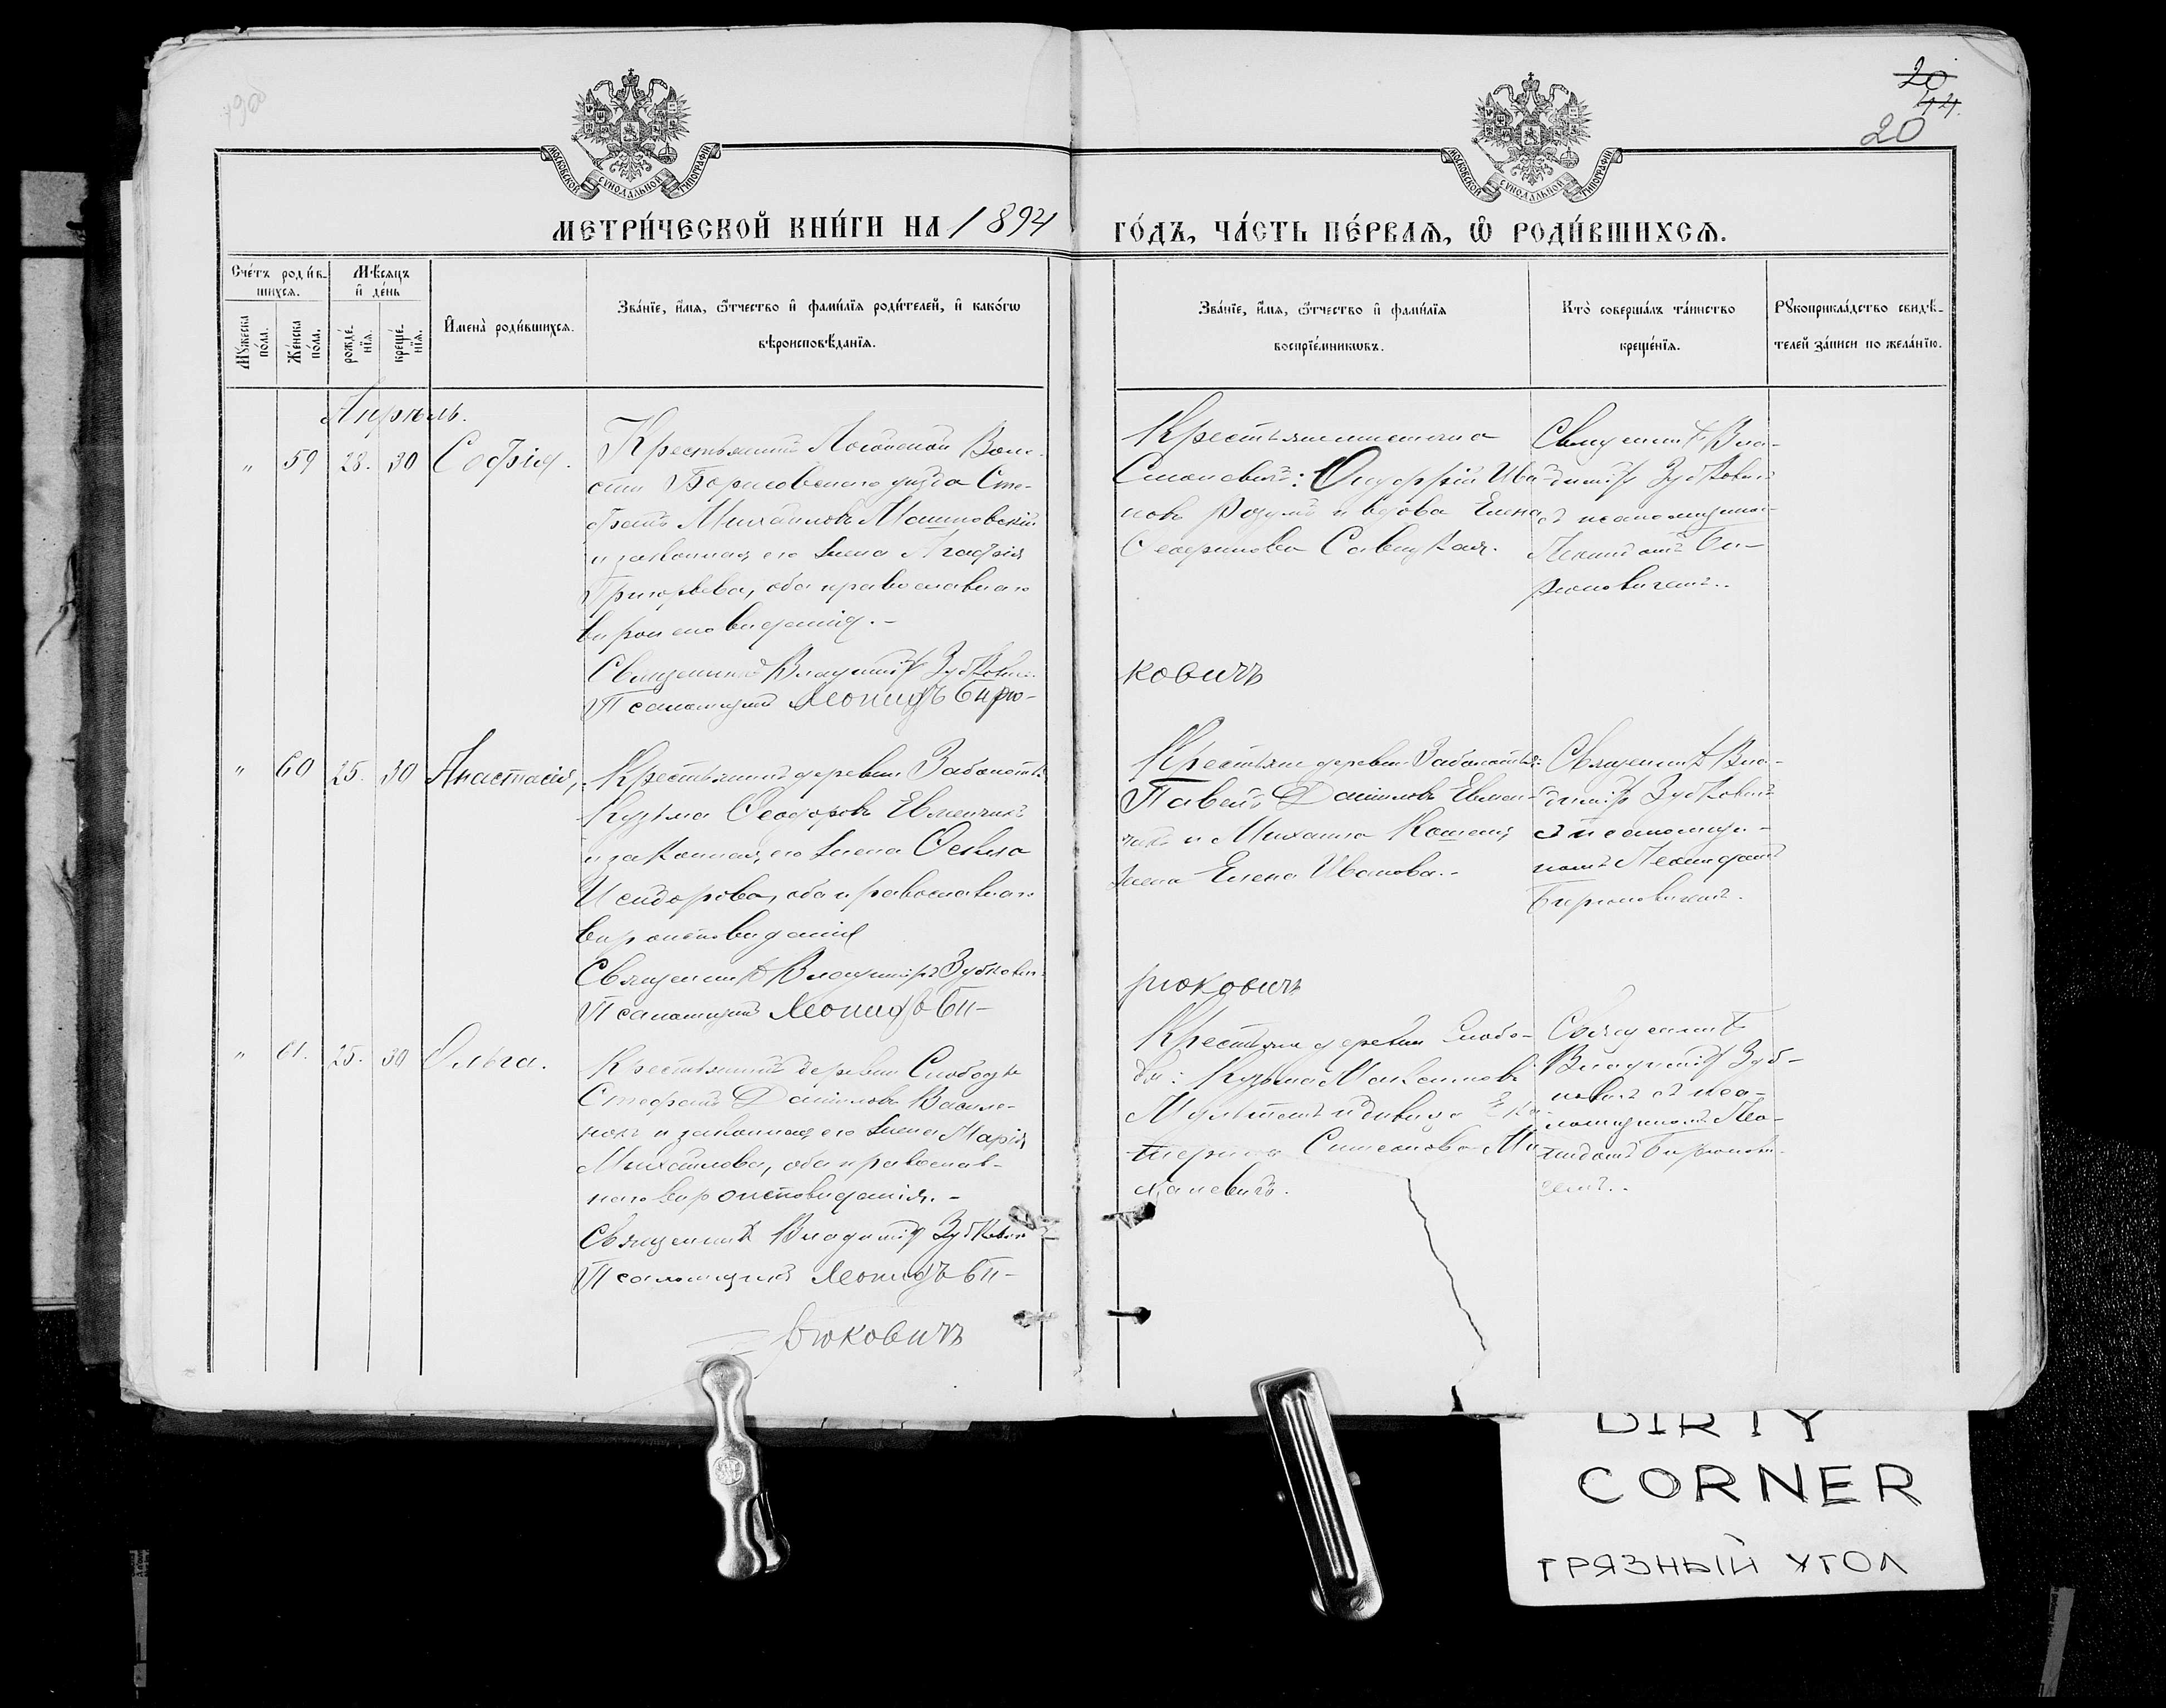 20
44
20
МОСКОВСКОЙ СѴНОДАЛЬНОЙ ТИПОГРАФІИ
МОСКОВСКОЙ СѴНОДАЛЬНОЙ ТИПОГРАФІИ
МЕТРИ́ЧЕСКОЙ КНИ́ГИ НА 1894
ГО́ДЪ, ЧА́СТЬ ПЕ́РВАѦ, Ѿ РОДИ́ВШИХСѦ.
Сче́тъ роди́в-
шихсѧ.
Мꙋ́жеска
по́ла.
Же́нска
по́ла.
Мѣ́сѧцъ
и҆ де́нь
рожде́-
нїѧ.
креще́-
нїѧ.
И҆мена̀ роди́вшихсѧ.
Зва́нїе, и҆́мѧ, ѻ҆́тчество и҆ фами́лїѧ роди́телей, и҆ како́гѡ
вѣроисповѣ́данїѧ.
Зва́нїе, и҆́мѧ, ѻ҆́тчество и҆ фами́лїѧ
воспрїе́мникѡвъ.
Кто̀ соверша́лъ та́инство
креще́нїѧ.
Рꙋкоприкла́дство свидѣ́-
телей за́писи по жела́нїю.
Апрѣль.
" 59 28. 30 Софія.
Крестьянинъ Логойской Воло-
сти Борисовскаго уѣзда Сте-
фанъ Михайловъ Машновскій
и законная его жена Агафія
Григорьева, оба православнаго
вѣроисповѣданія.-
Священникъ Владиміръ Зубкович
Псаломщикъ Леонидъ Бирю-
Крестьяне
Онуфрій Ива-
новъ и вдова Елена
Савицкая.
Священникъ Вла-
диміръ Зубкович
съ псаломщикомъ
Леонидомъ Би-
рюковичемъ..
ковичъ
" 60 25. 30 Анастасія,
Крестьянинъ деревни Заболотья
Кузьма Ѳеодоровъ Евменчикъ
и законная его жена Ѳекла
Исидорова, оба православнаго
вѣроисповѣданія
Священникъ Владиміръ Зубкович
Псаломщикъ Леонидъ Би-
Крестьяне деревни Заболотья:
Павелъ Даниловъ Евмен-
чикъ и Михаила
жена Елена Иванова.-
Священникъ Вла-
диміръ Зубковичъ
съ псаломщи-
комъ Леонидомъ
Бирюковичемъ.
рюковичъ
" 61. 25. 30 Ольга.
Крестьянинъ деревни Слободы
Стефанъ Даниловъ Василе-
и законная его жена Марія
Михайлова, оба православ-
наго вѣроисповѣданія.-
Священникъ Владиміръ Зубкович
Псаломщикъ Леонидъ Би-
рюковичъ
Крестьяне деревни Слобо-
ды: Кузьма Максимовъ
и дѣвица Ека-
терина
Священникъ
Владиміръ Зуб-
ковичъ съ пса-
ломщикомъ Лео-
нидомъ Бирюкови-
чемъ..
DIRTY
CORNER
ГРЯЗНЫЙ УГОЛ